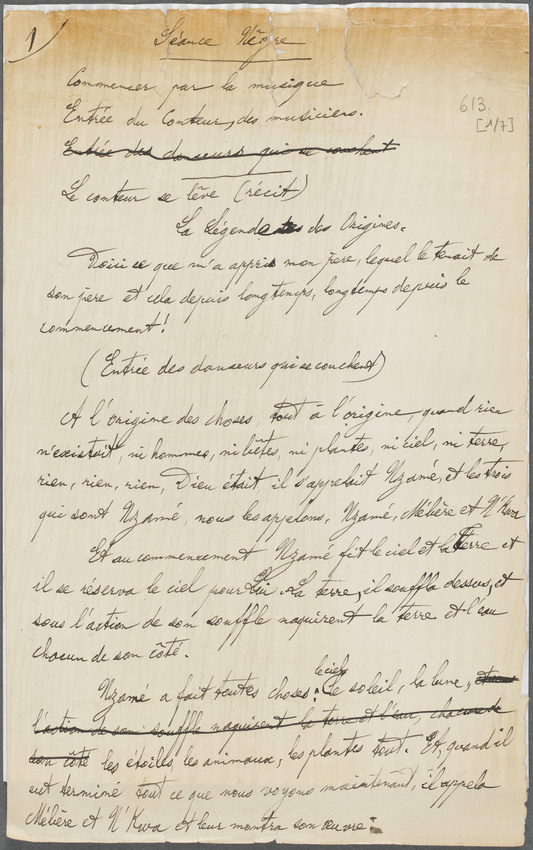 1
Séance Nègre
Commencer par la musique
613.
[1/7]
Entrée du Conteur, des musiciens.
Entrée des danseurs qui se couchent
Le conteur se lève (récit)
La Légende des Origines.
Voici ce que m'a appris mon père, lequel le tenait de
son père et cela depuis longtemps, longtemps depuis le
commencement!
(Entrée des danseurs qui se couchent)
A l'origine des choses, tout à l'origine, quand rien
n'existait, ni hommes, ni bêtes, ni plantes, ni ciel, ni terre,
rien, rien, rien, Dieu était il s'appelait Nzamé, et les trois
qui sont Nzamé, nous les appelons, Nzamé, Mébère et N'Kwa
Et au commencement Nzamé fit le ciel et la Terre et
il se réserva le ciel pour Lui. La terre, il souffla dessus, et
sous l'action de son souffle naquirent la terre et l'eau
chacun de son côté.
le ciel,
Nzamé a fait toutes choses: le soleil, la lune, et sous
l'action de son souffle naquirent la terre et l'eau, chacun de
son côté les étoiles, les animaux, les plantes tout. Et, quand il
eut terminé tout ce que nous voyons maintenant, il appela
Mébère et N'Kwa et leur montra son œuvre: